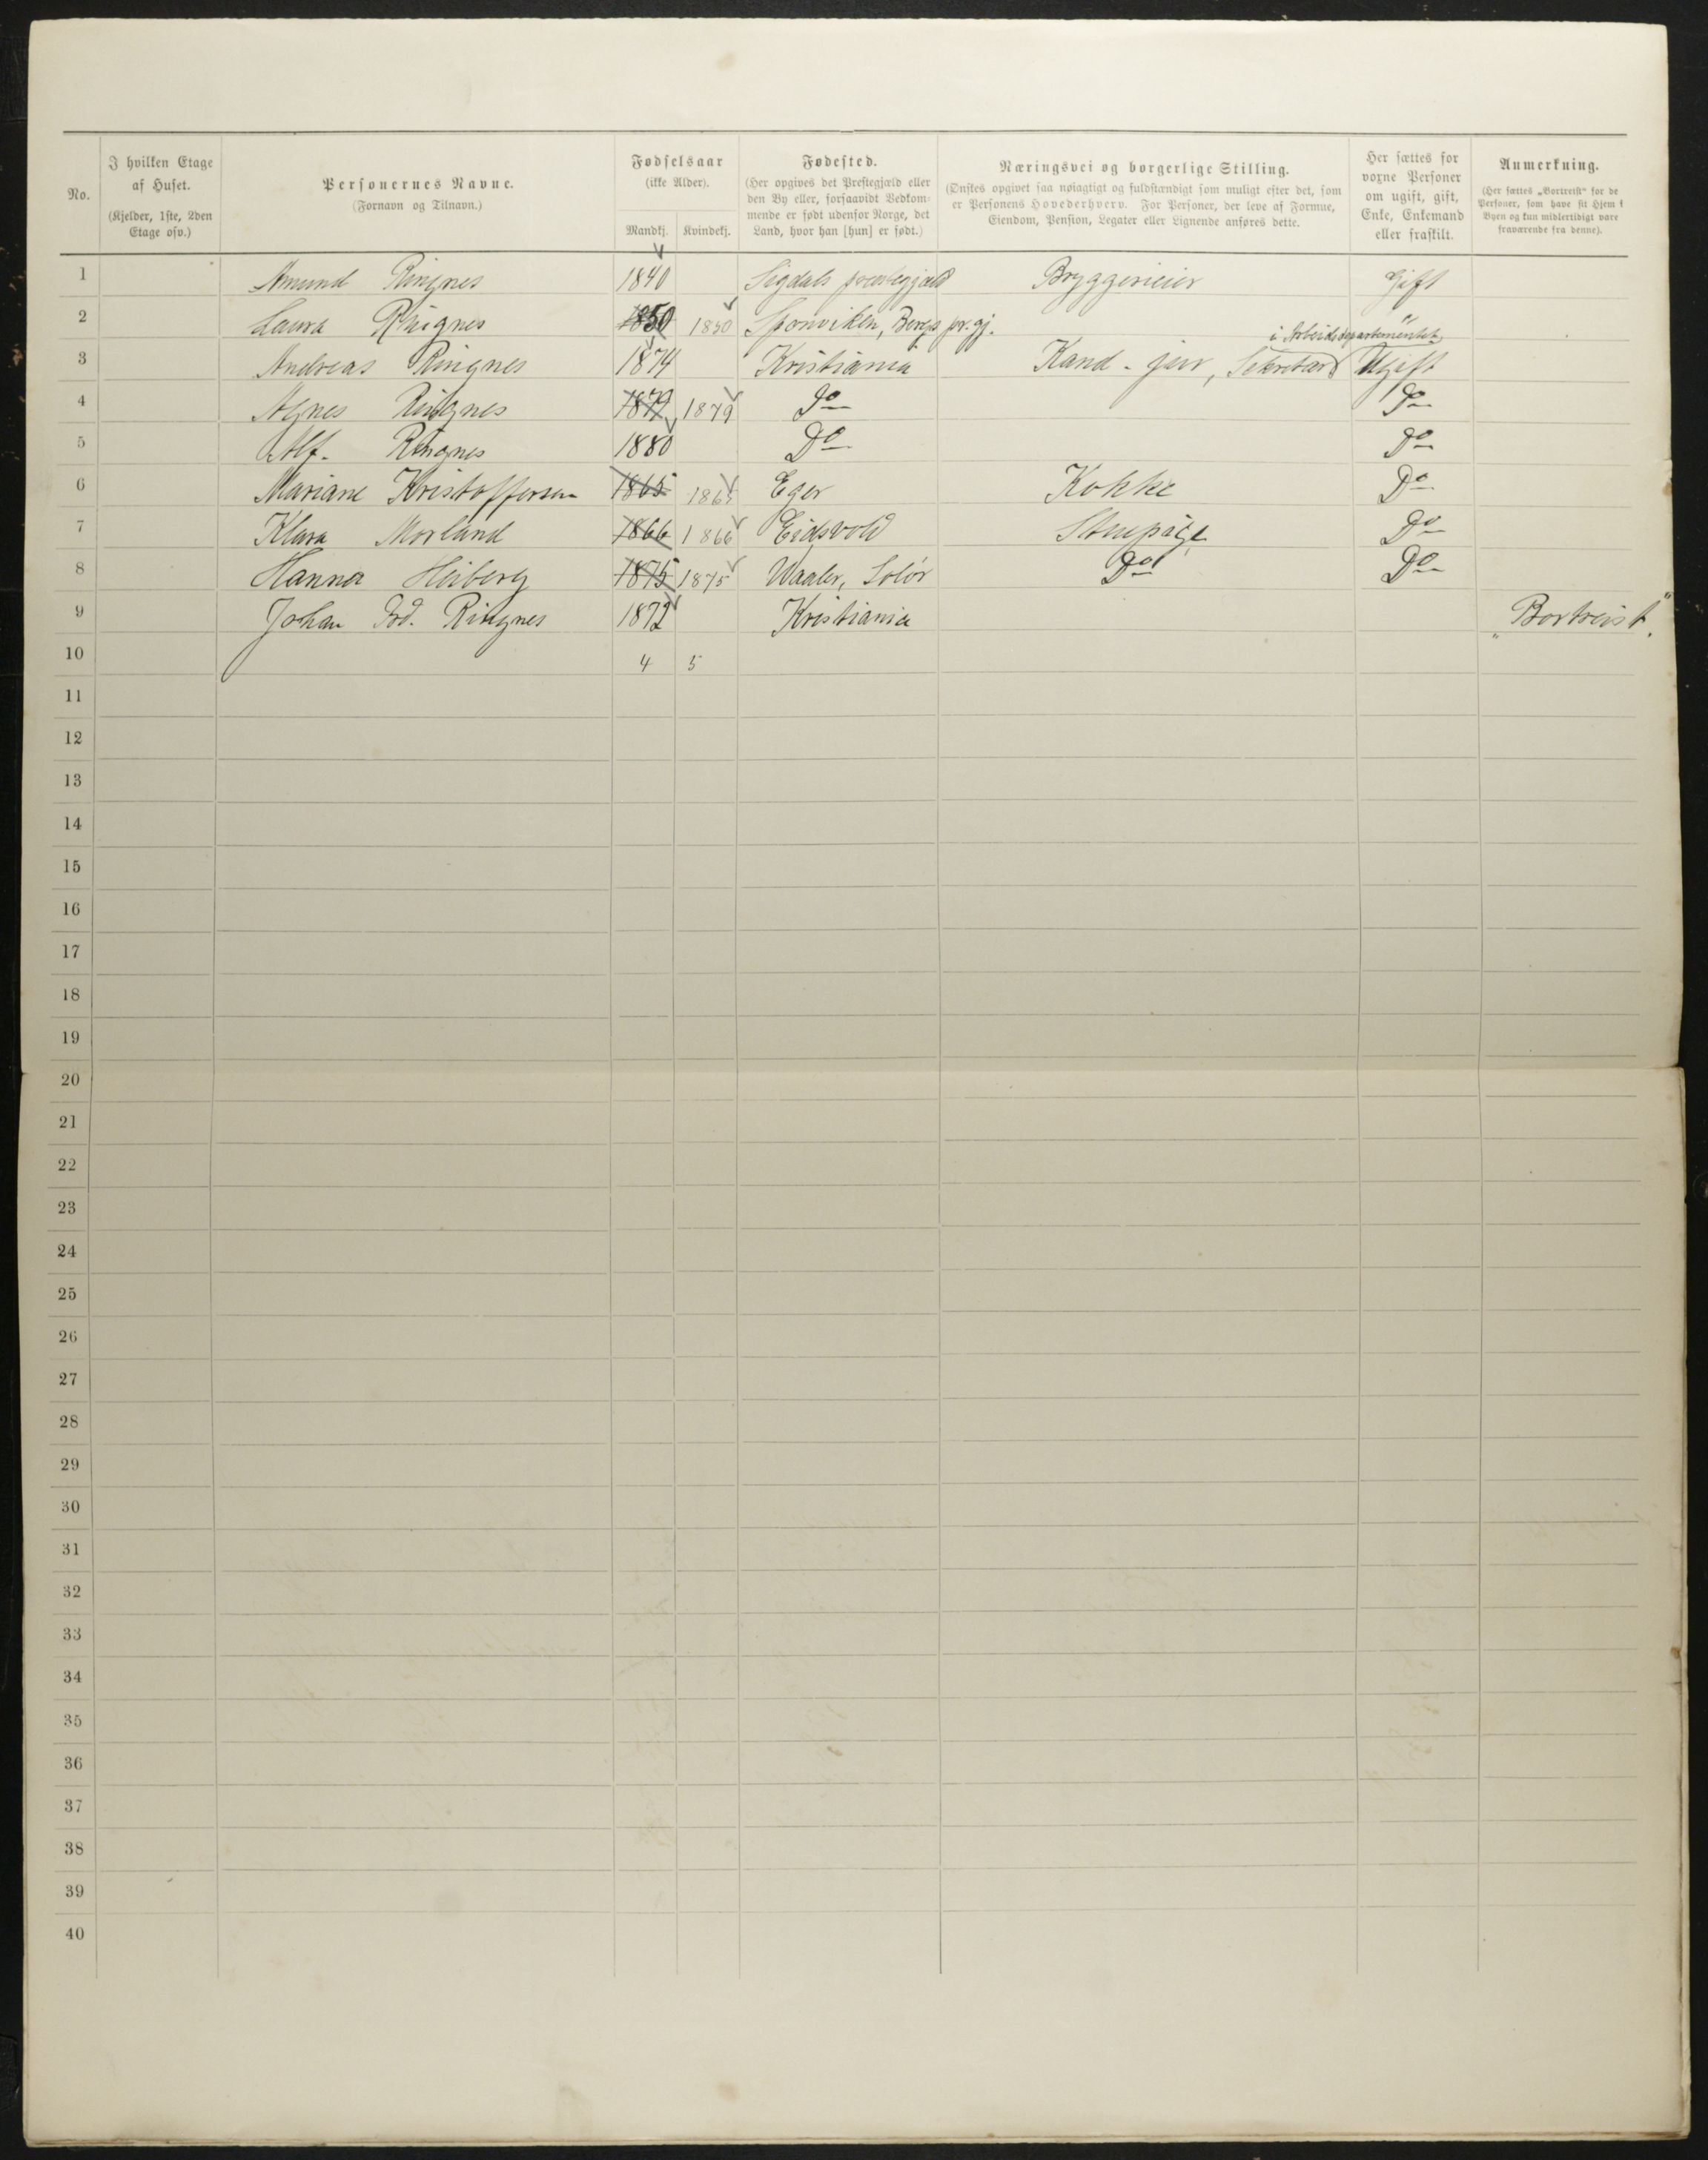 No.
I hvilken Etage af Huset.
(Kjelder, 1ste, 2den Etage osv.)
Personernes Navne.
(Fornavn og Tilnavn.)
Fødselsaar
(ikke Alder).
Mandkj. Kvindekj.
Fødested.
(Her opgives det Prestegjæld eller den By eller, forsaavidt Vedkommende er født udenfor Norge, det Land, hvor han [hun] er født.)
Næringsvei og borgerlige Stilling.
(Ønskes opgivet saa nøiagtigt og fuldstændigt som muligt efter det, som er Personens Hovederhverv. For Personer, der leve af Formue, Eiendom, Pension, Legater eller Lignende anføres dette.
Her sættes for voxne Personer om ugift, gift, Enke, Enkemand eller fraskilt.
Anmerkning.
(Her sættes „Bortreist" for de Personer, som have sit Hjem i Byen og kun midlertidigt vare fraværende fra denne).
1 Amund Ringnes 1840 Sigdals prestegjæld Bryggerieier Gift
2 Laura Ringnes 1850 1850 Sponviken, Bergs pr.gj. "
3 Andreas Ringnes 1874 Kristiania Kand. jur, Sekretær i Arbeidsdepartementet, Ugift
4 Agnes Ringnes 1879 1879 Do Do
5 Alf. Ringnes 1880 Do Do
6 Mariane Kristoffersen 1865 1865 Eger Kokke Do
7 Klara Morland 1866 1866 Eidsvold Stuepige Do
8 Hanna Heiberg 1875 1875 Waaler, Solør Do Do
9 Johan Fod. Ringnes 1872 Kristiania „Bortreist"
10 4 5
11
12
13
14
15
16
17
18
19
20
21
22
23
24
25
26
27
28
29
30
31
32
33
34
35
36
37
38
39
40